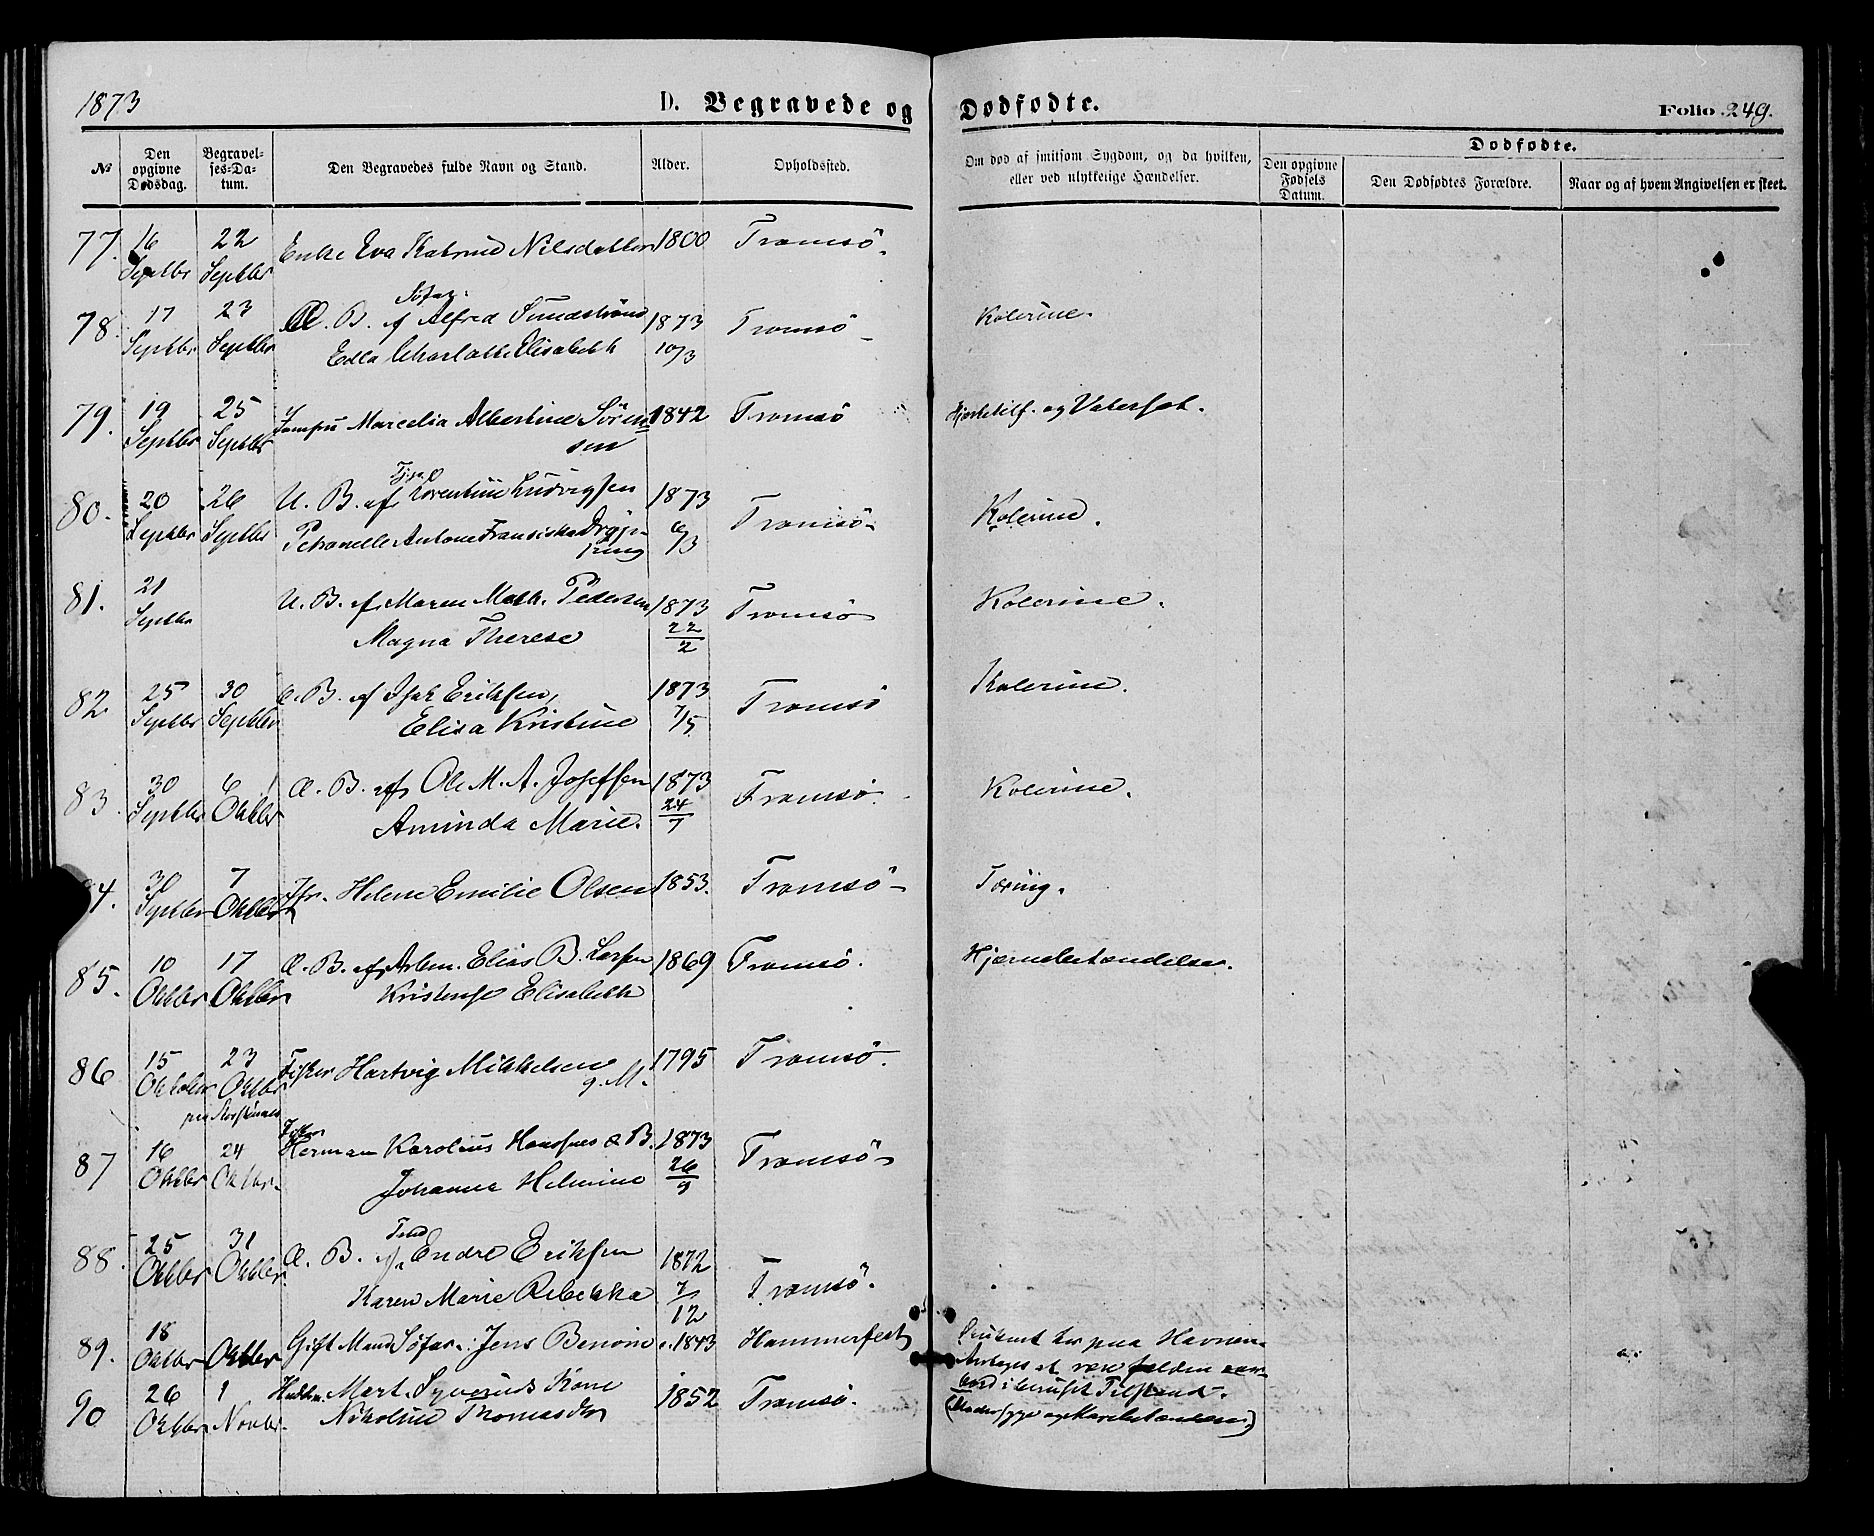 1873
D. Begravede og Dødfødte.
Folio 249.
№
Den opgivne Dødsdag.
Begravelses-Datum.
Den Begravedes fulde Navn og Stand.
Alder.
Opholdssted.
Om død af smitsom Sygdom, og da hvilken, eller ved ulykkelige Hændelser.
Dødfødte.
Den opgivne Fødsels Datum.
Den Dødfødtes Forældre.
Naar og af hvem Angivelsen er skeet.
77. 16 Septbr 22 Septbr Enke Eva Katrine Nilsdatter 1800 Tromsö.
78. 17 Septbr 23 Septbr Æ. B. af Söfar. Alfred Sundström 1873 Tromsö Kolerine.
Edla Charlotte Elisabeth 10/3
79. 19 Septbr 25 Septbr Jomfru Marcelia Albertine Sören 1842 Tromsö Hjertetilf. og Vatersot.
sen
80. 20 Septbr 26 Septbr U. B. af Lorentine Ludvigsen 1873 Tromsö Kolerine.
Petronelle Antone Fransiska 6/3
81. 21 Septbr U. B. af Maren Math. Pedersen 1873 Tromsö Kolerine.
Magna Therese 22/2
82 25 Septbr 30 Septbr Æ. B. af Isak Eriksen, 1873 Tromsö Kolerine.
Elisa Kristine 7/5
83. 30 Septbr 6 Oktbr Æ. B. af Ole M. A. Josefsen 1873 Tromsö. Kolerine.
Aminda Marie. 24/7
84. 30 Septbr 7 Oktbr Jfr. Helene Emilie Olsen 1853. Tromsö Tæring.
85. 10 Oktbr 17 Oktbr Æ. B. af Arbm. Elias B. Larsen 1869 Tromsö. Hjernebetændelse.
Kristense Elisabeth
86 15 Oktober 23 Oktbr Fisker Hartvig Mikkelsen 1795 Tromsö.
g. M.
87 16 Oktbr 24 Oktbr. Fisker Herman Karolius Hansens Æ B. 1873 Tromsö
Johanna Helmine 26/9
88. 25 Oktbr 31 Oktbr Æ. B. af Endre Eriksen 1872 Tromsö.
Karen Marie Rebekka 7/12
89. 18 Oktbr Oktbr Gift Mand Söfar: Jens Benoni c. 1843 Hammerfest Druknet her paa Havnen.
Antages at være falden over
bord i beruset Tilstand.
90 26 Oktbr 1 Novbr. Mart. Syveruds Kone 1852 Tromsö.
Nikoline Thomasdtr